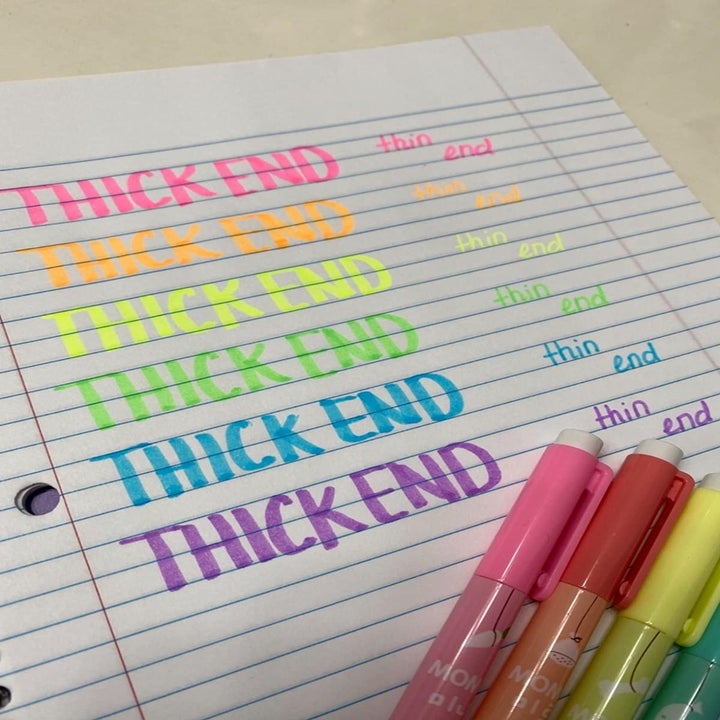 THICK END thin end
THICK END thin end
THICK END thin end
THICK END thin end
THICK END thin end
THICK END thin end
MON
MON